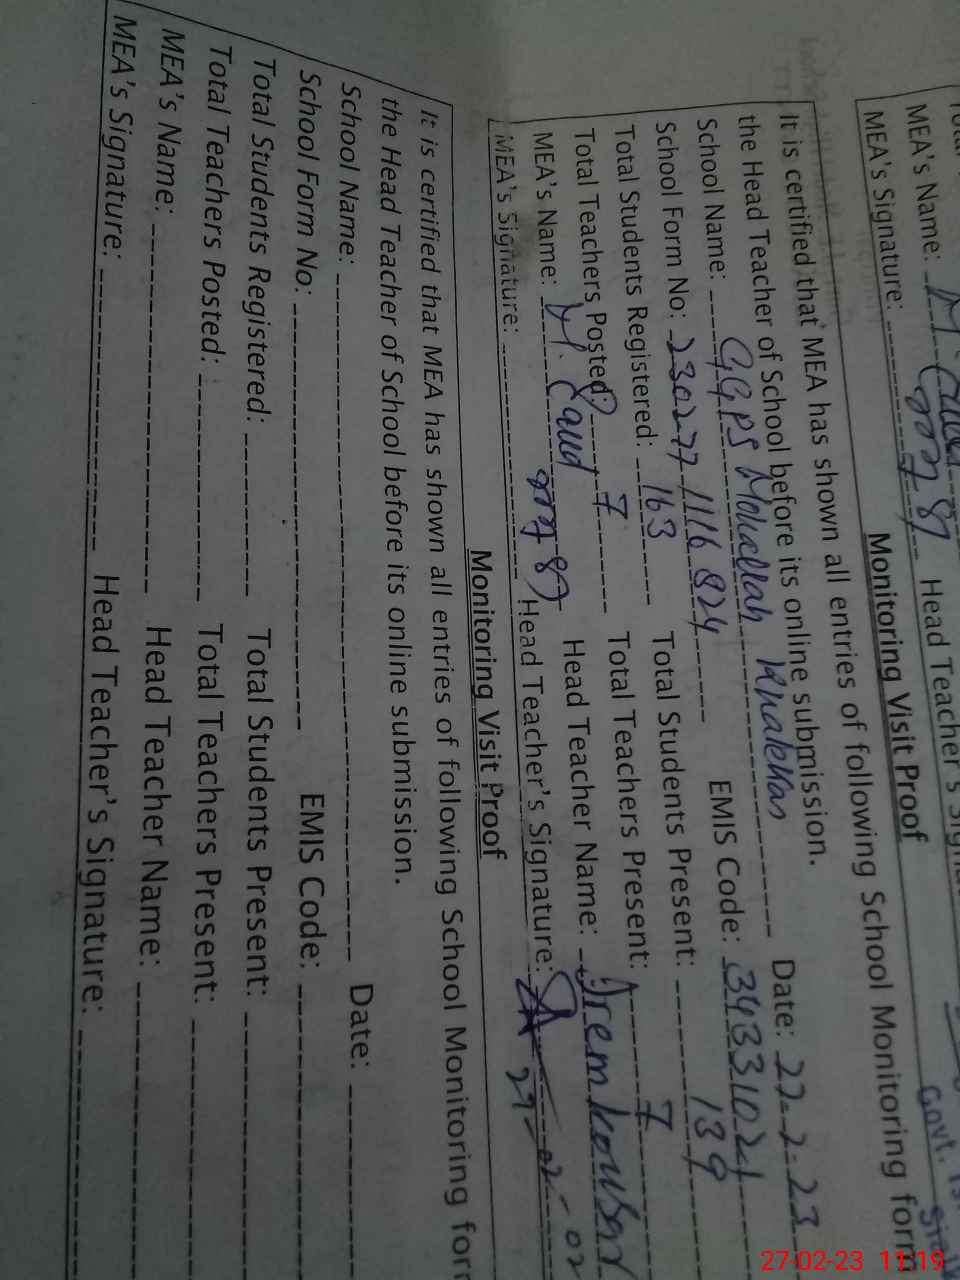 MEA's Name:
MEA's Signature: Head Teacher's
Govt.
Monitoring Visit Proof
It is certified that MEA has shown all entries of following School Monitoring form
the Head Teacher of School before its online submission.
School Name: GGPS Mohallah Khalekas Date: 22-2-23
School Form No: 230277 1116 824 EMIS Code: 34331021
Total Students Registered: 163 Total Students Present: 139
Total Teachers Posted: 7 Total Teachers Present: 7
MEA's Name: M. Saud Head Teacher Name: Irem kousar
MEA's Signature: Head Teacher's Signature:
Monitoring Visit Proof
It is certified that MEA has shown all entries of following School Monitoring for
the Head Teacher of School before its online submission.
School Name: Date:
School Form No: EMIS Code:
Total Students Registered: Total Students Present:
Total Teachers Posted: Total Teachers Present:
MEA's Name: Head Teacher Name:
MEA's Signature: Head Teacher's Signature:
27-02-23 11:19